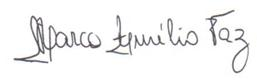 Marco Emílio Vaz